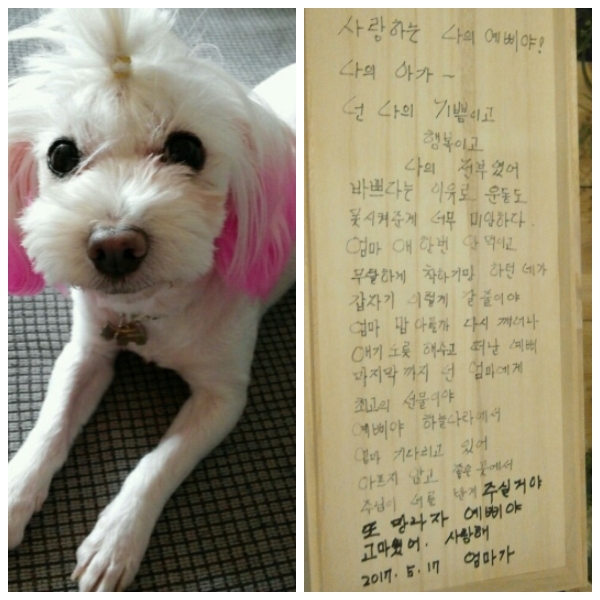 사랑하는 나의 예삐야!
나의 아가~
넌 나의 기쁨이고
행복이고
나의 전부였어
바쁘다는 이유로 운동도
못시켜준게 너무 미안하다.
엄마 애 한번 안 먹이고
무탈하게 착하기만 하던 네가
갑자기 이렇게 갈 줄이야
엄마 맘 아플까 다시 깨어나
애기 노릇 해주고 떠난 예삐
마지막까지 넌 엄마에게
최고의 선물이야
예삐야 하늘나라에서
엄마 기다리고 있어
아프지 않고 좋은 곳에서
주님이 너를 주실거야
또 만나자 예삐야
고마웠어. 사랑해
2017. 5. 17 엄마가